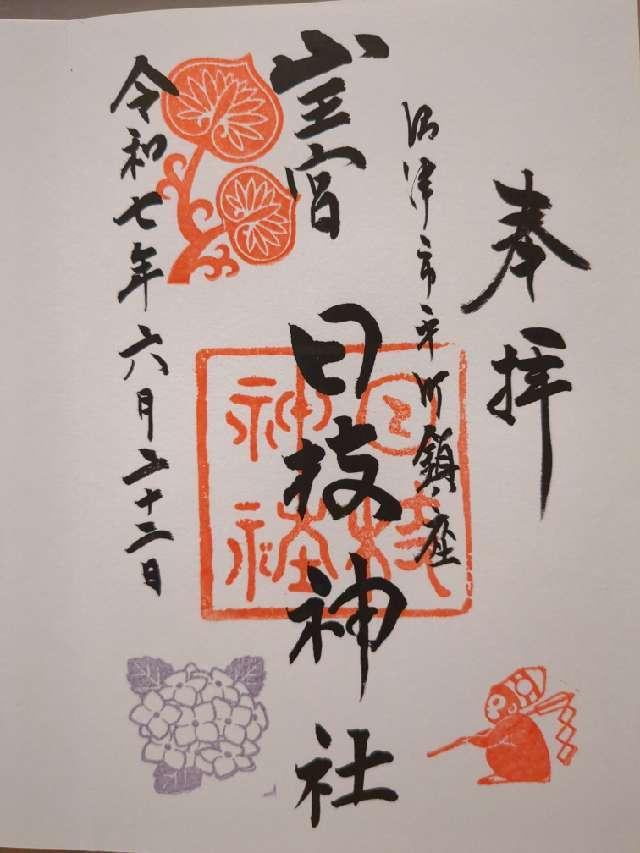 奉拝
沼津市平町鎮座
山王宮
日枝神社
日枝
神社
令和七年六月二十二日